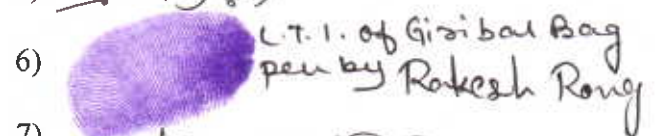 6) L.T.I. of Giribal Bag
pen by Rakesh Rong
7)